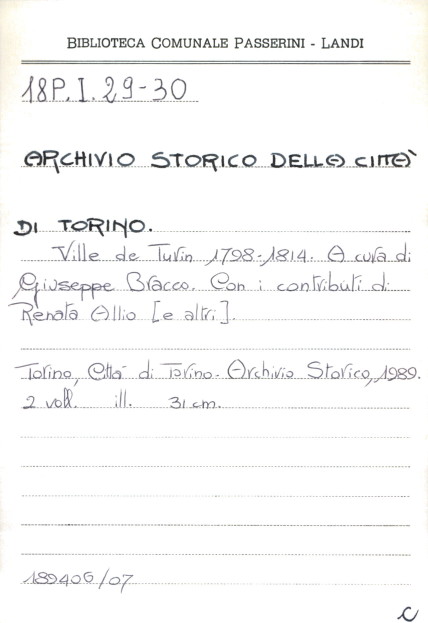 BIBLIOTECA COMUNALE PASSERINI - LANDI
18P. I. 29-30
ARCHIVIO STORICO DELLA CITTA'
DI TORINO.
Ville de Turin 1798-1814. A cura di
Giuseppe Bracco. Con i contributi di
Renata Allio [e altri].
Torino, Città di Torino. Archivio Storico, 1989.
2 voll. ill. 31 cm.
189406/07
C